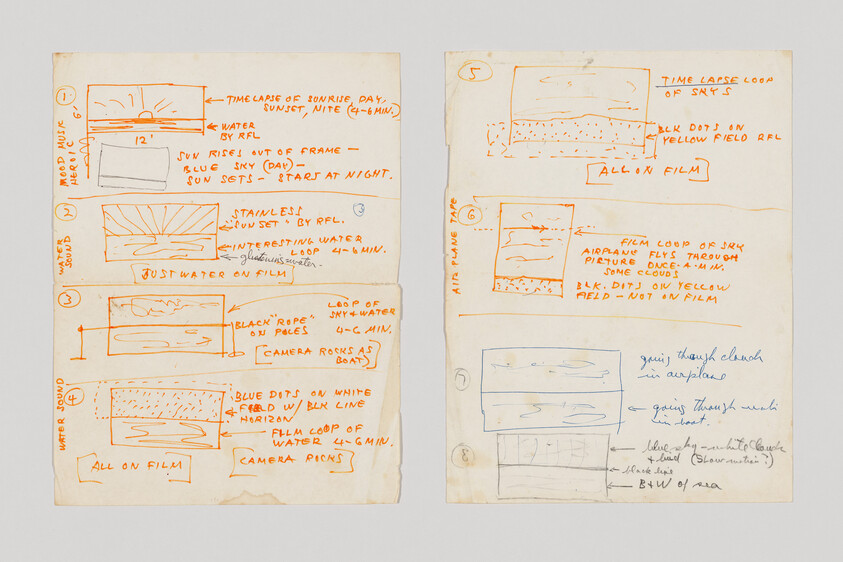 1
6'
MOOD MUSIC
HEROIC
TIME LAPSE OF SUNRISE, DAY,
SUNSET, NITE (4-6 MIN.)
WATER
BY RFL
12'
SUN RISES OUT OF FRAME —
BLUE SKY (DAY) —
SUN SETS — STARS AT NIGHT.
2
3
WATER
SOUND
STAINLESS
SUNSET" BY RFL.
INTERESTING WATER
LOOP 4-6 MIN.
water.
JUST WATER ON FILM
3
LOOP OF
SKY & WATER
BLACK "ROPE"
ON POLES
4-6 MIN.
[CAMERA ROCKS AS
BOAT]
4
WATER SOUND
BLUE DOTS ON WHITE
FIELD W/ BLK LINE
HORIZON
FILM LOOP OF
WATER 4-6 MIN.
[ALL ON FILM]
[CAMERA ROCKS]
5
TIME LAPSE LOOP
OF SKYS
BLK DOTS ON
YELLOW FIELD RFL
[ALL ON FILM]
6
AIR PLANE TAPE
FILM LOOP OF SKY
AIRPLANE FLYS THROUGH
PICTURE ONCE-A-MIN.
SOME CLOUDS
BLK. DOTS ON YELLOW
FIELD — NOT ON FILM
7
going through clouds
in airplane
going through water
in boat.
8
blue sky — white clouds
& bird (slow motion?)
black line
B&W of sea